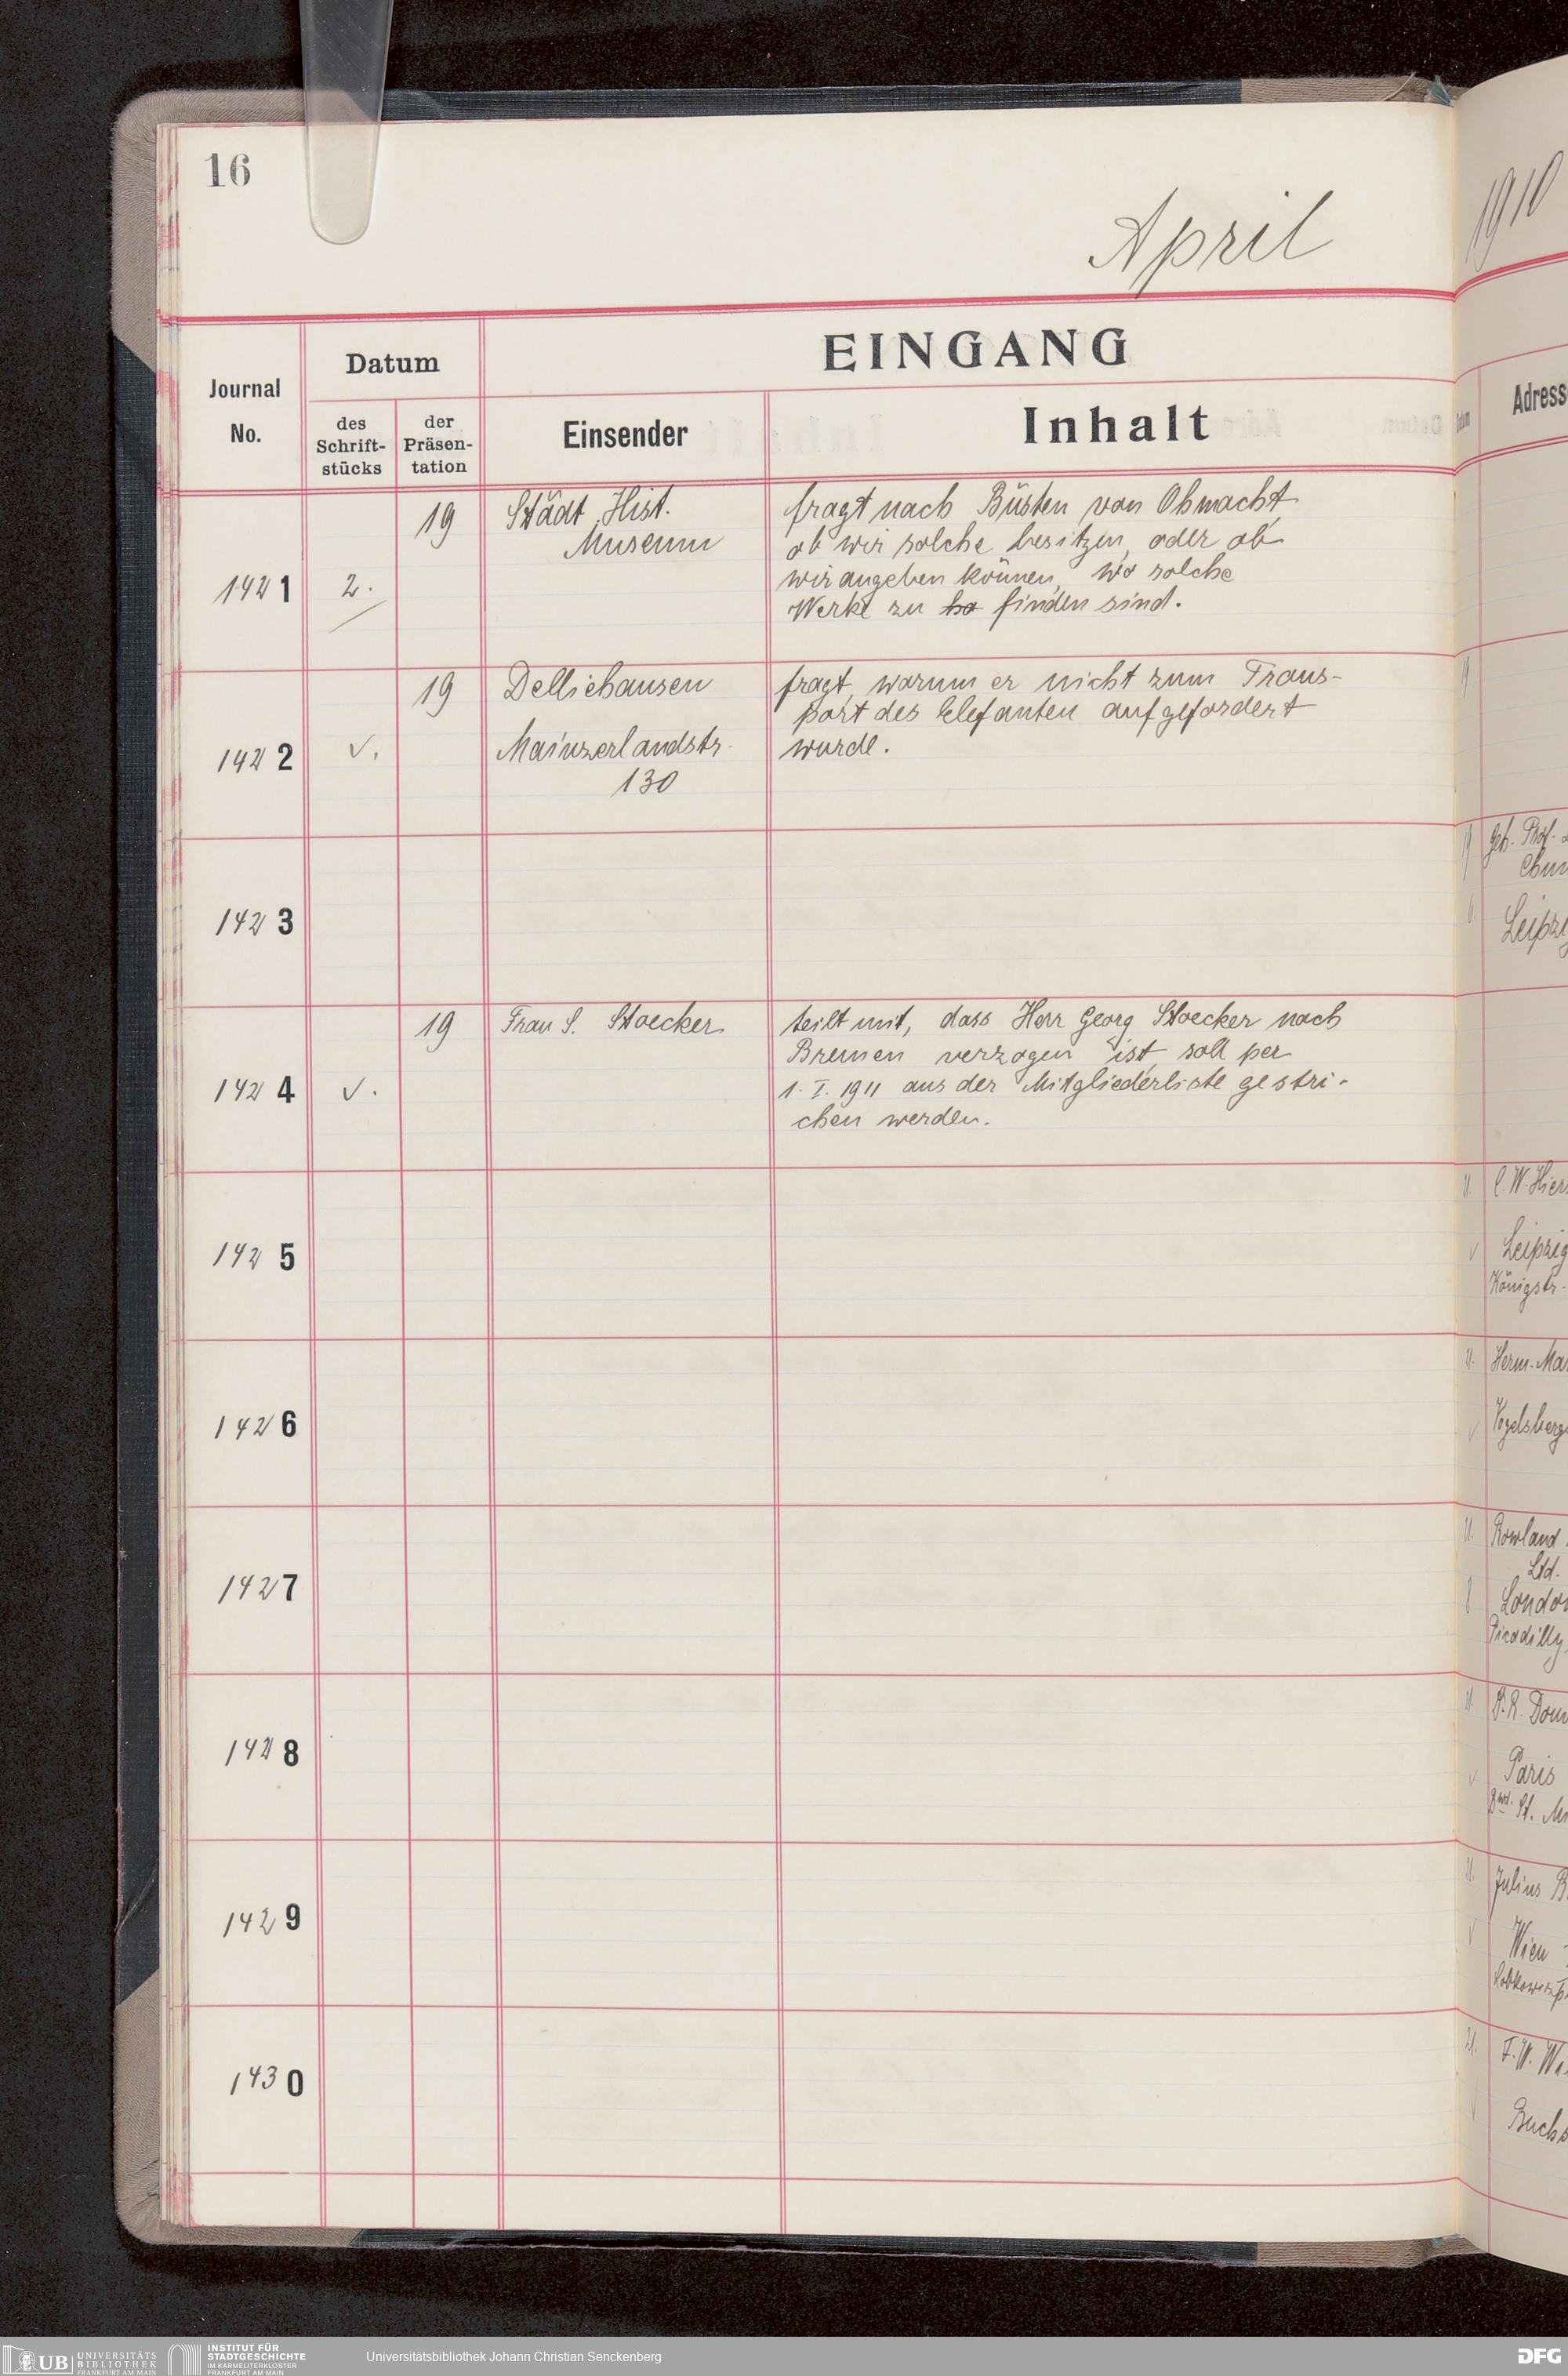 16
April
1910
EINGANG
Journal
No.
Datum
des
Schrift-
stücks
der
Präsen-
tation
Einsender
Inhalt
Datum
Adress
1421
2.
19
Städt. Hist.
Museum
fragt nach Büsten von Ohmacht,
ob wir solche besitzen, oder ob
wir angeben können, wo solche
Werke zu ho finden sind.
1422
19
Delliehausen
Mainzerlandstr.
130
fragt, warum er nicht zum Trans-
port des Elefanten aufgefordert
wurde.
1423
1424
19
Frau S. Stoecker
teilt mit, dass Herr Georg Stoecker nach
Bremen verzogen ist, soll per
1. I. 1911 aus der Mitgliederliste gestri-
chen werden.
1425
1426
1427
1428
1429
1430
Geh. Prof.
Chun
Leipzig
C. W. Hiers
Leipzig
Königstr.
Herm. Ma
Vogelsberg
Rowland
Ltd.
London
Picadilly
Paris
St. M
Julius B
Wien
F. W. Wa
UB UNIVERSITÄTS
BIBLIOTHEK
FRANKFURT AM MAIN
INSTITUT FÜR
STADTGESCHICHTE
IM KARMELITERKLOSTER
FRANKFURT AM MAIN
Universitätsbibliothek Johann Christian Senckenberg
DFG